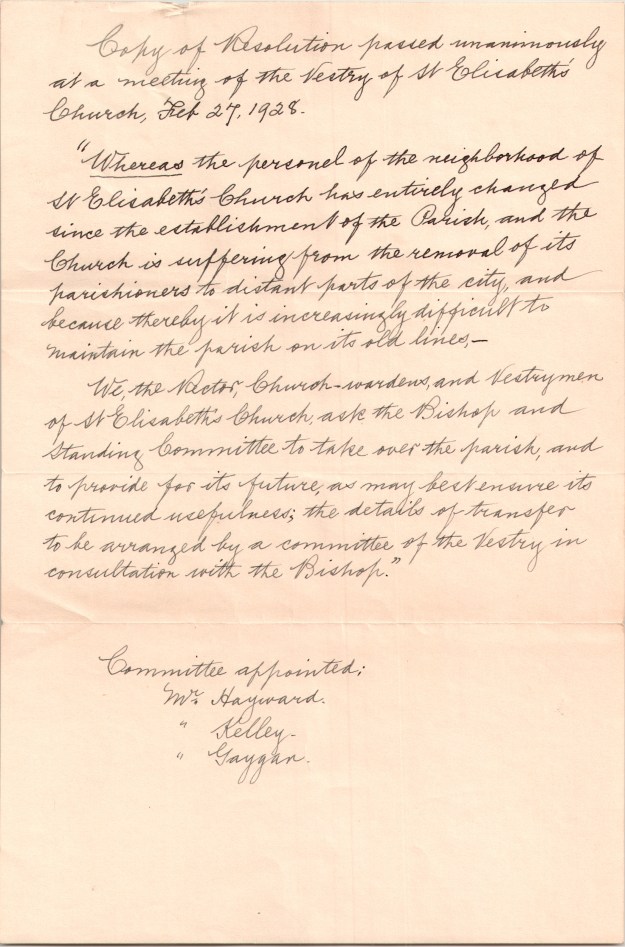 Copy of Resolution passed unanimously
at a meeting of the Vestry of St Elisabeth's
Church, Feb 27, 1928.
"Whereas the personel of the neighborhood of
St Elisabeth's Church has entirely changed
since the establishment of the Parish, and the
Church is suffering from the removal of its
parishioners to distant parts of the city, and
because thereby it is increasingly difficult to
maintain the parish on its old lines,—
We, the Rector, Church-wardens, and Vestrymen
of St Elisabeth's Church, ask the Bishop and
Standing Committee to take over the parish, and
to provide for its future, as may best ensure its
continued usefulness; the details of transfer
to be arranged by a committee of the Vestry in
consultation with the Bishop."
Committee appointed:
Mr. Hayward.
" Kelley.
" Gaygan.